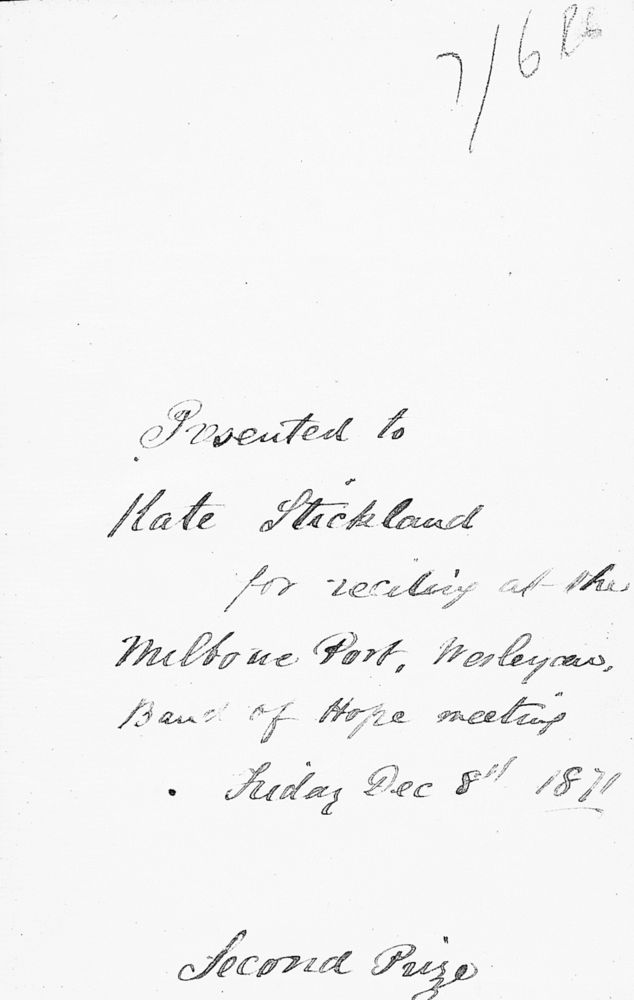 7/6
Presented to
Kate Stickland
for reciting at the
Milborne Port, Wesleyan,
Band of Hope meeting
Friday Dec 8th 1871
Second Prize